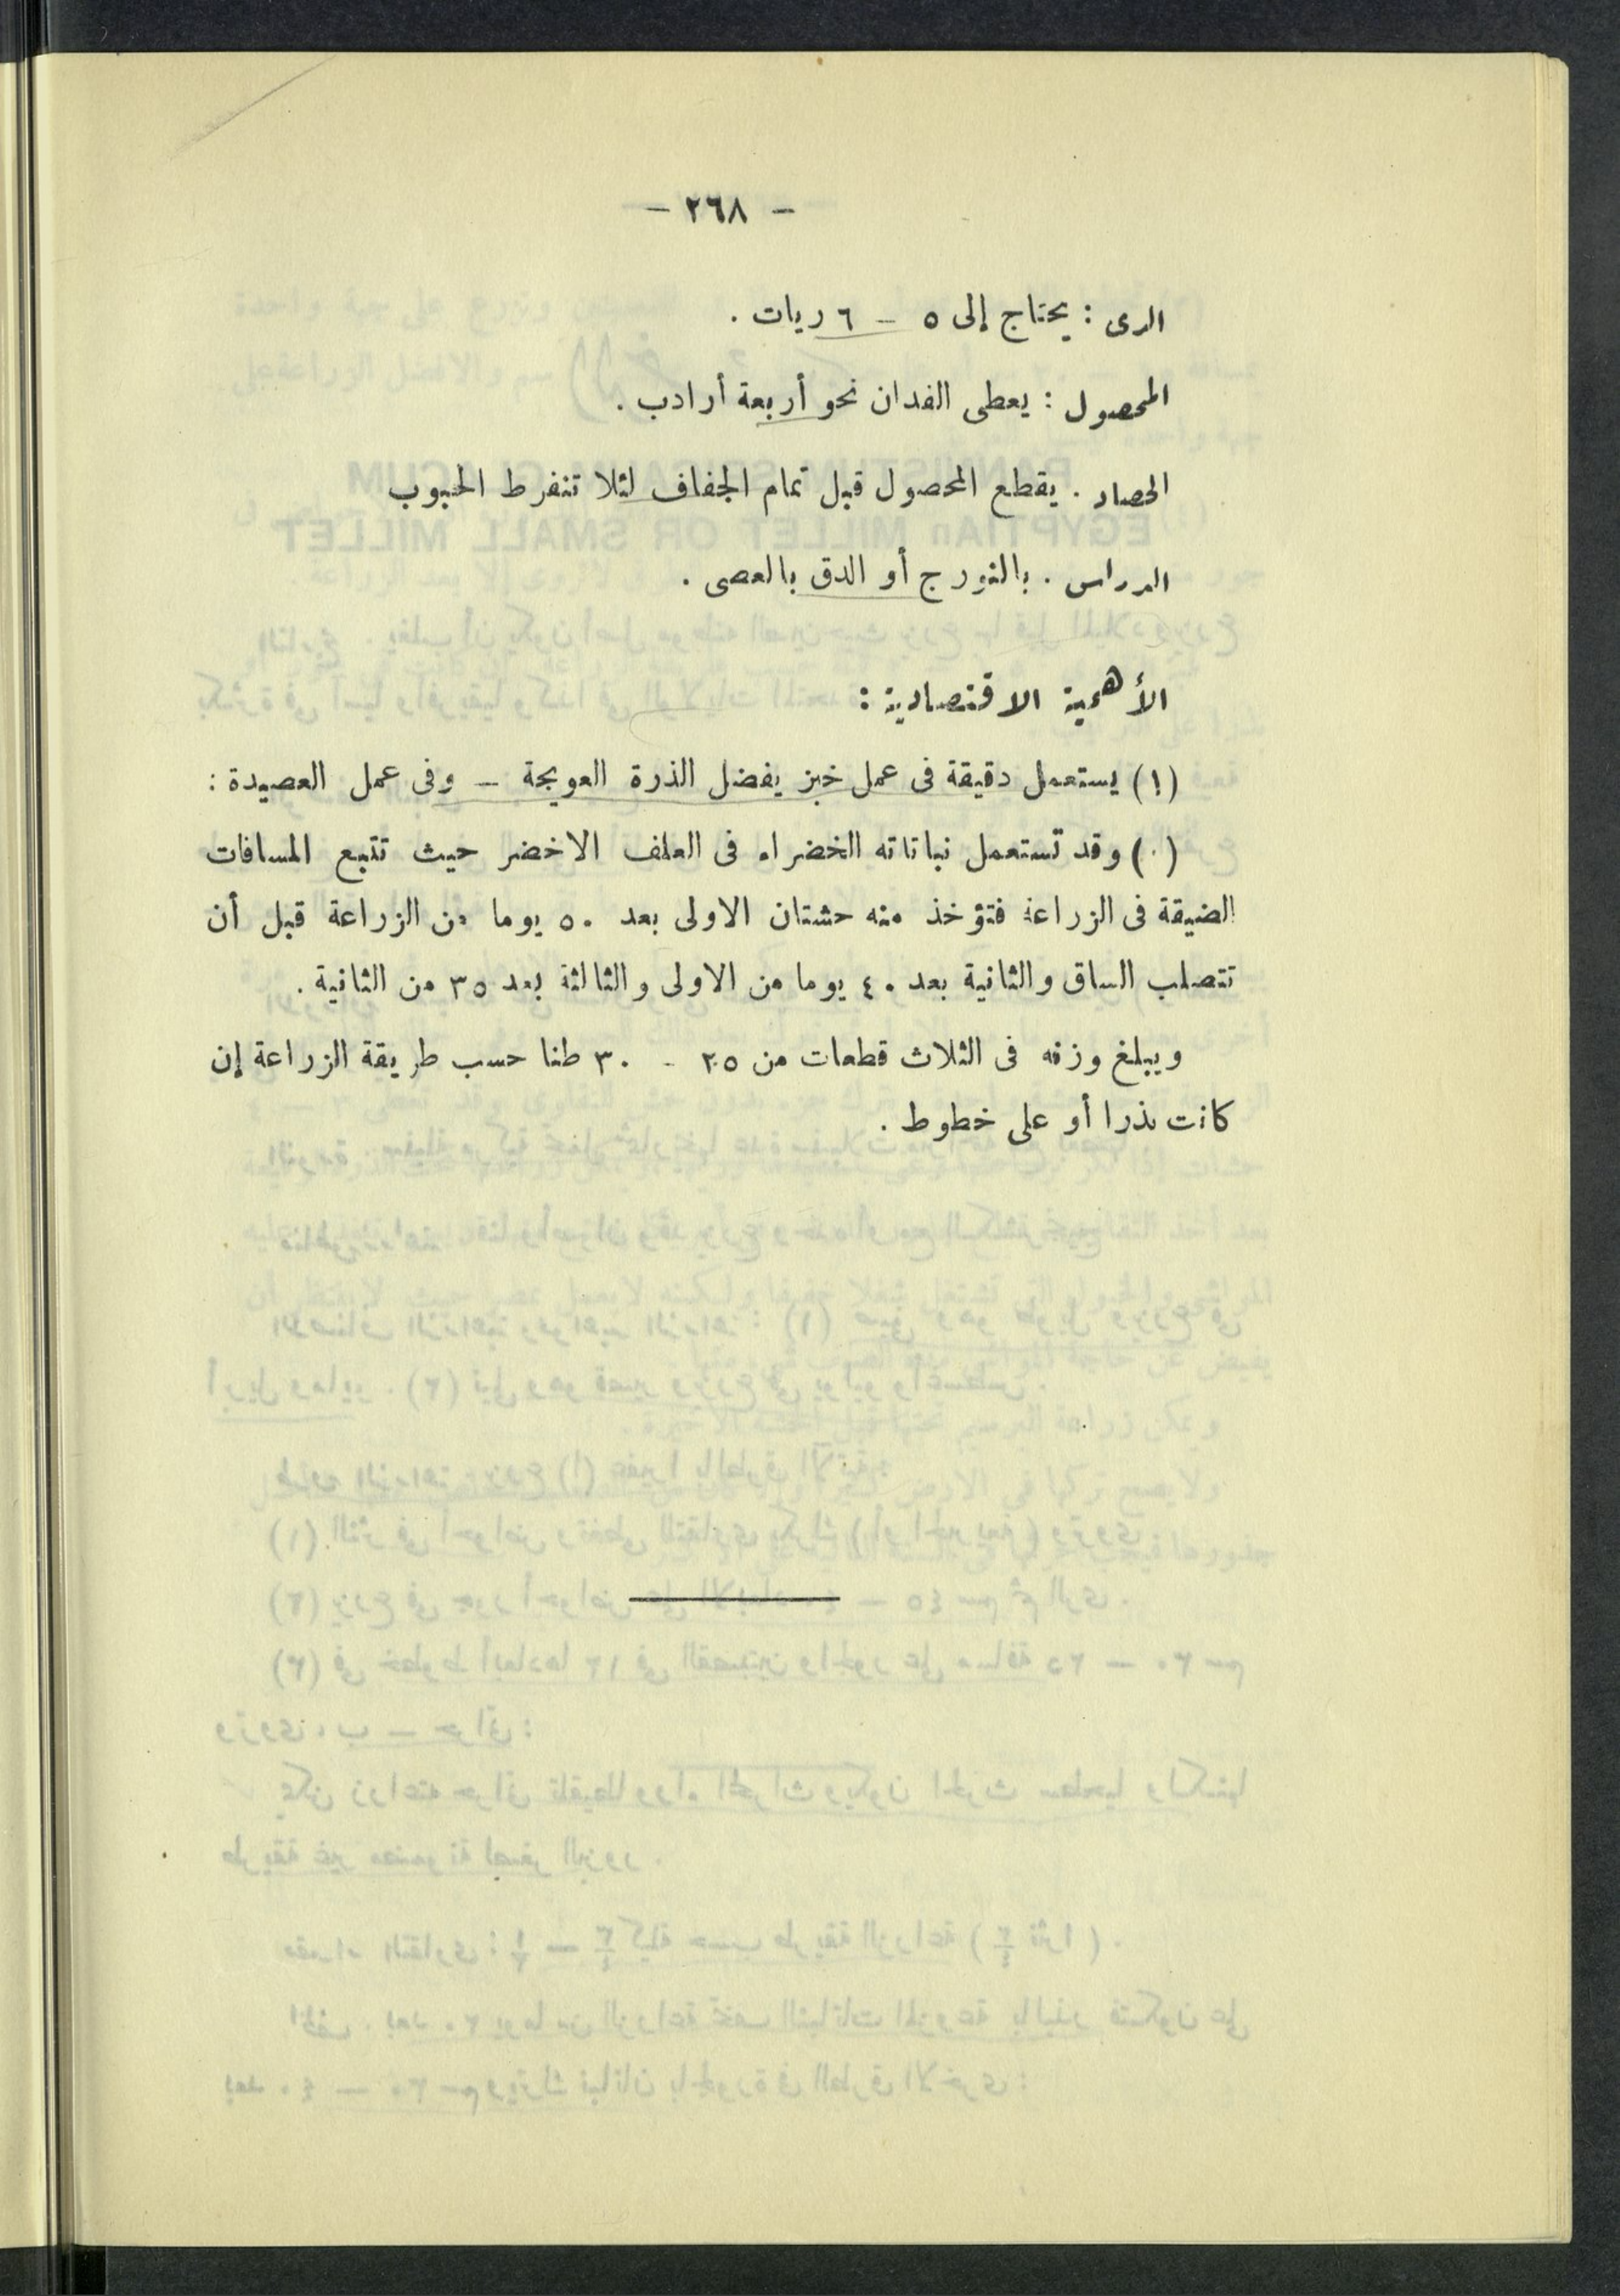 - ٢٦٨ -
الرى : يحتاج إلى ٥ - ٦ ريات .
المحصول : يعطى الفدان نحو أربعة أرادب .
الحصاد . يقطع المحصول قبل تمام الجفاف لئلا تنفرط الحبوب
الدراس . بالنورج أو الدق بالعصى .
الأهمية الاقتصادية :
(١) يستعمل دقيقة فى عمل خبز يفضل الذرة العويجة - وفى عمل العصيدة :
(٠) وقد تستعمل نباتاته الخضراء فى العلف الاخضر حيث تتبع المسافات
الضيقة فى الزراعة فتؤخذ منه حشتان الاولى بعد ٥٠ يوما من الزراعة قبل أن
تتصلب الساق والثانية بعد ٤٠ يوما من الاولى والثالثة بعد ٣٥ من الثانية .
ويبلغ وزنه فى الثلاث قطعات من ٢٥ - ٣٠ طنا حسب طريقة الزراعة إن
كانت بذرا أو على خطوط .